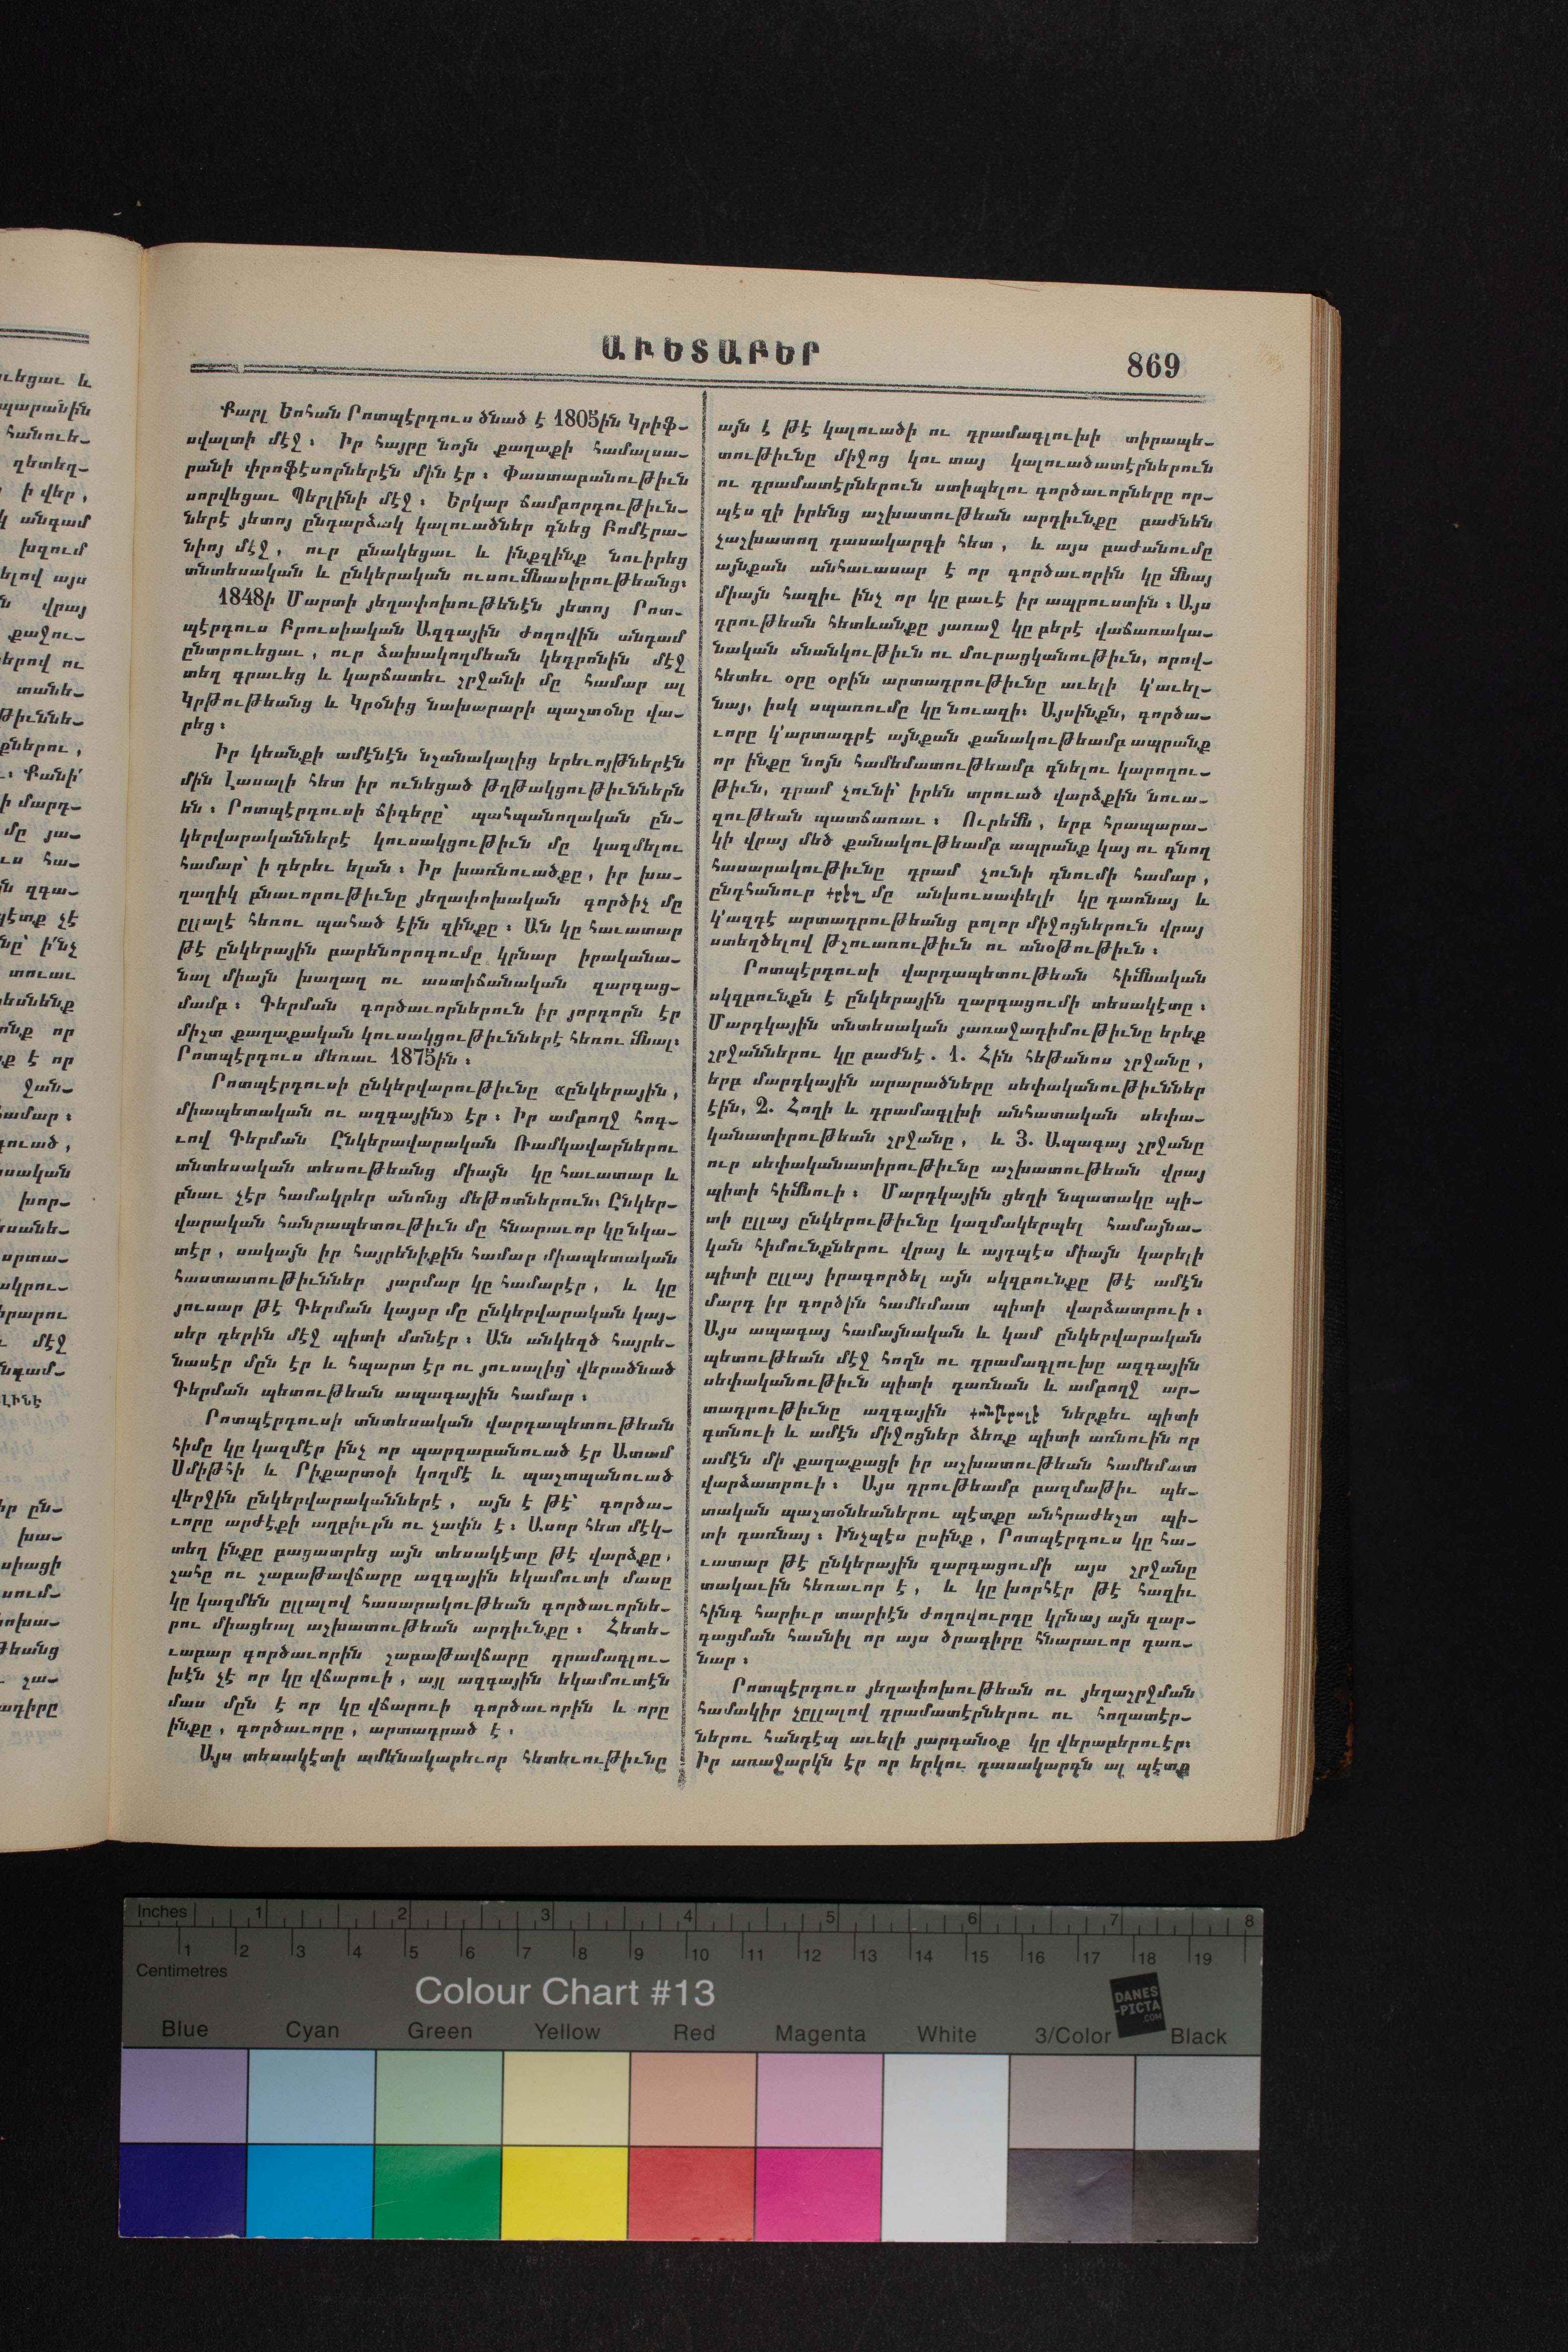 ԱՒԵՏԱԲԵՐ
869
Քարլ Եոհան Րոտպէրդուս ծնած է 1805ին Կրիֆ-
սվալտի մէջ։ Իր հայրը նոյն քաղաքի համալսա-
րանի փրոֆէսորներէն մին էր։ Փաստաբանութիւն
սորվեցաւ Պերլինի մէջ։ Երկար ճամբորդութիւն-
ներէ յետոյ ընդարձակ կալուածներ գնեց Բոմէրա-
նիոյ մէջ, ուր բնակեցաւ և ինքզինք նուիրեց
տնտեսական և ընկերական ուսումնասիրութեանց։
1848ի Մարտի յեղափոխութենէն յետոյ Րոտ-
պէրդուս Բրուսիական Ազգային Ժողովին անդամ
ընտրուեցաւ, ուր ձախակողմեան կեդրոնին մէջ
տեղ գրաւեց և կարճատեւ շրջանի մը համար ալ
Կրթութեանց և Կրօնից նախարարի պաշտօնը վա-
րեց։
Իր կեանքի ամէնէն նշանակալից երեւոյթներէն
մին Լասալի հետ իր ունեցած թղթակցութիւններն
են։ Րոտպէրդուսի ճիգերը՝ պահպանողական ըն-
կերվարականներէ կուսակցութիւն մը կազմելու
համար՝ ի դերեւ ելան։ Իր խառնուածքը, իր խա-
ղաղիկ բնաւորութիւնը յեղափոխական գործիչ մը
ըլլալէ հեռու պահած էին զինքը։ Ան կը հաւատար
թէ ընկերային բարենորոգումը կրնար իրականա-
նալ միայն խաղաղ ու աստիճանական զարգաց-
մամբ։ Գերման գործաւորներուն իր յորդորն էր
միշտ քաղաքական կուսակցութիւններէ հեռու մնալ։
Րոտպէրդուս մեռաւ 1875ին։
Րոտպէրդուսի ընկերվարութիւնը «ընկերային,
միապետական ու ազգային» էր։ Իր ամբողջ հոգ-
ւով Գերման Ընկերավարական Ռամկավարներու
տնտեսական տեսութեանց միայն կը հաւատար և
բնաւ չէր համակրեր անոնց մեթոտներուն։ Ընկեր-
վարական հանրապետութիւն մը հնարաւոր կը նկա-
տէր, սակայն իր հայրենիքին համար միապետական
հաստատութիւններ յարմար կը համարէր, և կը
յուսար թէ Գերման կայսր մը ընկերվարական կայ-
սեր դերին մէջ պիտի մտնէր։ Ան անկեղծ հայրե-
նասէր մըն էր և հպարտ էր ու յուսալից՝ վերածնած
Գերման պետութեան ապագային համար։
Րոտպէրդուսի տնտեսական վարդապետութեան
հիմը կը կազմէր ինչ որ պարզաբանուած էր Ատամ
Սմիթհի և Րիքարտօի կողմէ և պաշտպանուած
վերջին ընկերվարականներէ, այն է թէ՝ գործա-
ւորը արժէքի աղբիւրն ու չափն է։ Ասոր հետ մէկ-
տեղ ինքը բացատրեց այն տեսակէտը թէ վարձքը,
շահը ու շաբաթավճարը ազգային եկամուտի մասը
կը կազմեն ըլլալով հասարակութեան գործաւորնե-
րու միացեալ աշխատութեան արդիւնքը։ Հետե-
ւաբար գործաւորին շաբաթավճարը դրամագլու-
խէն չէ որ կը վճարուի, այլ ազգային եկամուտէն
մաս մըն է որ կը վճարուի գործաւորին և որը
ինքը, գործաւորը, արտադրած է.
Այս տեսակէտի ամենակարեւոր հետեւութիւնը
այն է թէ կալուածի ու դրամագլուխի տիրապե-
տութիւնը միջոց կու տայ կալուածատէրներուն
ու դրամատէրներուն ստիպելու գործաւորները որ-
պէս զի իրենց աշխատութեան արդիւնքը բաժնեն
չաշխատող դասակարգի հետ, և այս բաժանումը
այնքան անհաւասար է որ գործաւորին կը մնայ
միայն հազիւ ինչ որ կը բաւէ իր ապրուստին։ Այս
դրութեան հետևանքը յառաջ կը բերէ վաճառակա-
նական սնանկութիւն ու մուրացկանութիւն, որով-
հետեւ օրը օրին արտադրութիւնը աւելի կ'աւել-
նայ, իսկ սպառումը կը նուազի։ Այսինքն, գործա-
ւորը կ'արտադրէ այնքան քանակութեամբ ապրանք
որ ինքը նոյն համեմատութեամբ գնելու կարողու-
թիւն, դրամ չունի՝ իրեն տրուած վարձքին նուա-
զութեան պատճառաւ։ Ուրեմն, երբ հրապարա-
կի վրայ մեծ քանակութեամբ ապրանք կայ ու գնող
հասարակութիւնը դրամ չունի գնումի համար,
ընդհանուր քրիզ մը անխուսափելի կը դառնայ և
կ'ազդէ արտադրութեանց բոլոր միջոցներուն վրայ
ստեղծելով թշուառութիւն ու անօթութիւն։
Րոտպէրդուսի վարդապետութեան հիմնական
սկզբունքն է ընկերային զարգացումի տեսակէտը։
Մարդկային տնտեսական յառաջադիմութիւնը երեք
շրջաններու կը բաժնէ. 1. Հին հեթանոս շրջանը,
երբ մարդկային արարածները սեփականութիւններ
էին, 2. Հողի և դրամագլխի անհատական սեփա-
կանատիրութեան շրջանը, և 3. Ապագայ շրջանը
ուր սեփականատիրութիւնը աշխատութեան վրայ
պիտի հիմնուի։ Մարդկային ցեղի նպատակը պի-
տի ըլլայ ընկերութիւնը կազմակերպել համայնա-
կան հիմունքներու վրայ և այդպէս միայն կարելի
պիտի ըլլայ իրագործել այն սկզբունքը թէ ամէն
մարդ իր գործին համեմատ պիտի վարձատրուի։
Այս ապագայ համայնական և կամ ընկերվարական
պետութեան մէջ հողն ու դրամագլուխը ազգային
սեփականութիւն պիտի դառնան և ամբողջ ար-
տադրութիւնը ազգային քոնթրոլի ներքեւ պիտի
գտնուի և ամէն միջոցներ ձեռք պիտի առնուին որ
ամէն մի քաղաքացի իր աշխատութեան համեմատ
վարձատրուի։ Այս դրութեամբ բազմաթիւ պե-
տական պաշտօնեաներու պէտքը անհրաժեշտ պի-
տի դառնայ։ Ինչպէս ըսինք, Րոտպէրդուս կը հա-
ւատար թէ ընկերային զարգացումի այս շրջանը
տակաւին հեռաւոր է, և կը խորհէր թէ հազիւ
հինգ հարիւր տարիէն ժողովուրդը կրնայ այն զար-
գացման հասնիլ որ այս ծրագիրը հնարաւոր դառ-
նար։
Րոտպէրդուս յեղափոխութեան ու յեղաշրջման
համակիր չըլլալով դրամատէրներու ու հողատէր-
ներու հանդէպ աւելի յարդանօք կը վերաբերուէր։
Իր առաջարկն էր որ երկու դասակարգն ալ պէտք
Inches 1 2 3 4 5 6 7 8
1 2 3 4 5 6 7 8 9 10 11 12 13 14 15 16 17 18 19
Centimetres
Colour Chart #13
DANES
-PICTA
.COM
Blue Cyan Green Yellow Red Magenta White 3/Color Black